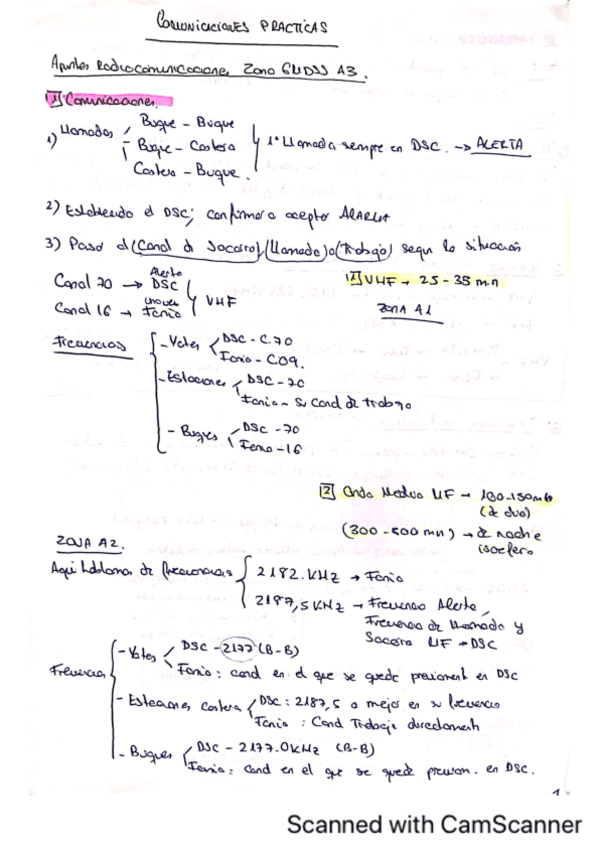 COMUNICACIONES PRACTICAS
Apuntes Radiocomunicaciones Zona GMDSS A3.
1) Comunicaciones.
1) Llamadas Buque - Buque
Buque - Costera
Costera - Buque.
1ª Llamada siempre en DSC. -> ALERTA
2) Establecido el DSC; confirmar o aceptar ALARMA
3) Paso al (Canal de Socorro)/(Llamada) o (Trabajo) segun la situación
Canal 70 -> Alerta DSC
Canal 16 -> Fonia
VHF
1) VHF -> 25 - 35 m.n
ZONA A1
Frecuencias
- Yates DSC - C.70
Fonia - C09.
- Estaciones DSC - 70
Fonia - Su Canal de trabajo
- Buques DSC - 70
Fonia - 16
2) Onda Media MF - 100-150 mn
(de dia)
(300 - 500 mn) -> de noche
ZONA A2.
Aqui hablamos de frecuencias
2182. KHz -> Fonia
2187,5 KHz -> Frecuencia Alerta,
Frecuencia de Llamada y
Socorro MF -> DSC
Frecuencia
- Yates DSC - 2177 (B-B)
Fonia: canal en el que se quede previament en DSC
- Estaciones Costera DSC: 2187,5 o mejor en su frecuencia
Fonia : Canal Trabajo directament
- Buques DSC - 2177.0 KHz (B-B)
Fonia: canal en el que se quede previam. en DSC.
1
Scanned with CamScanner